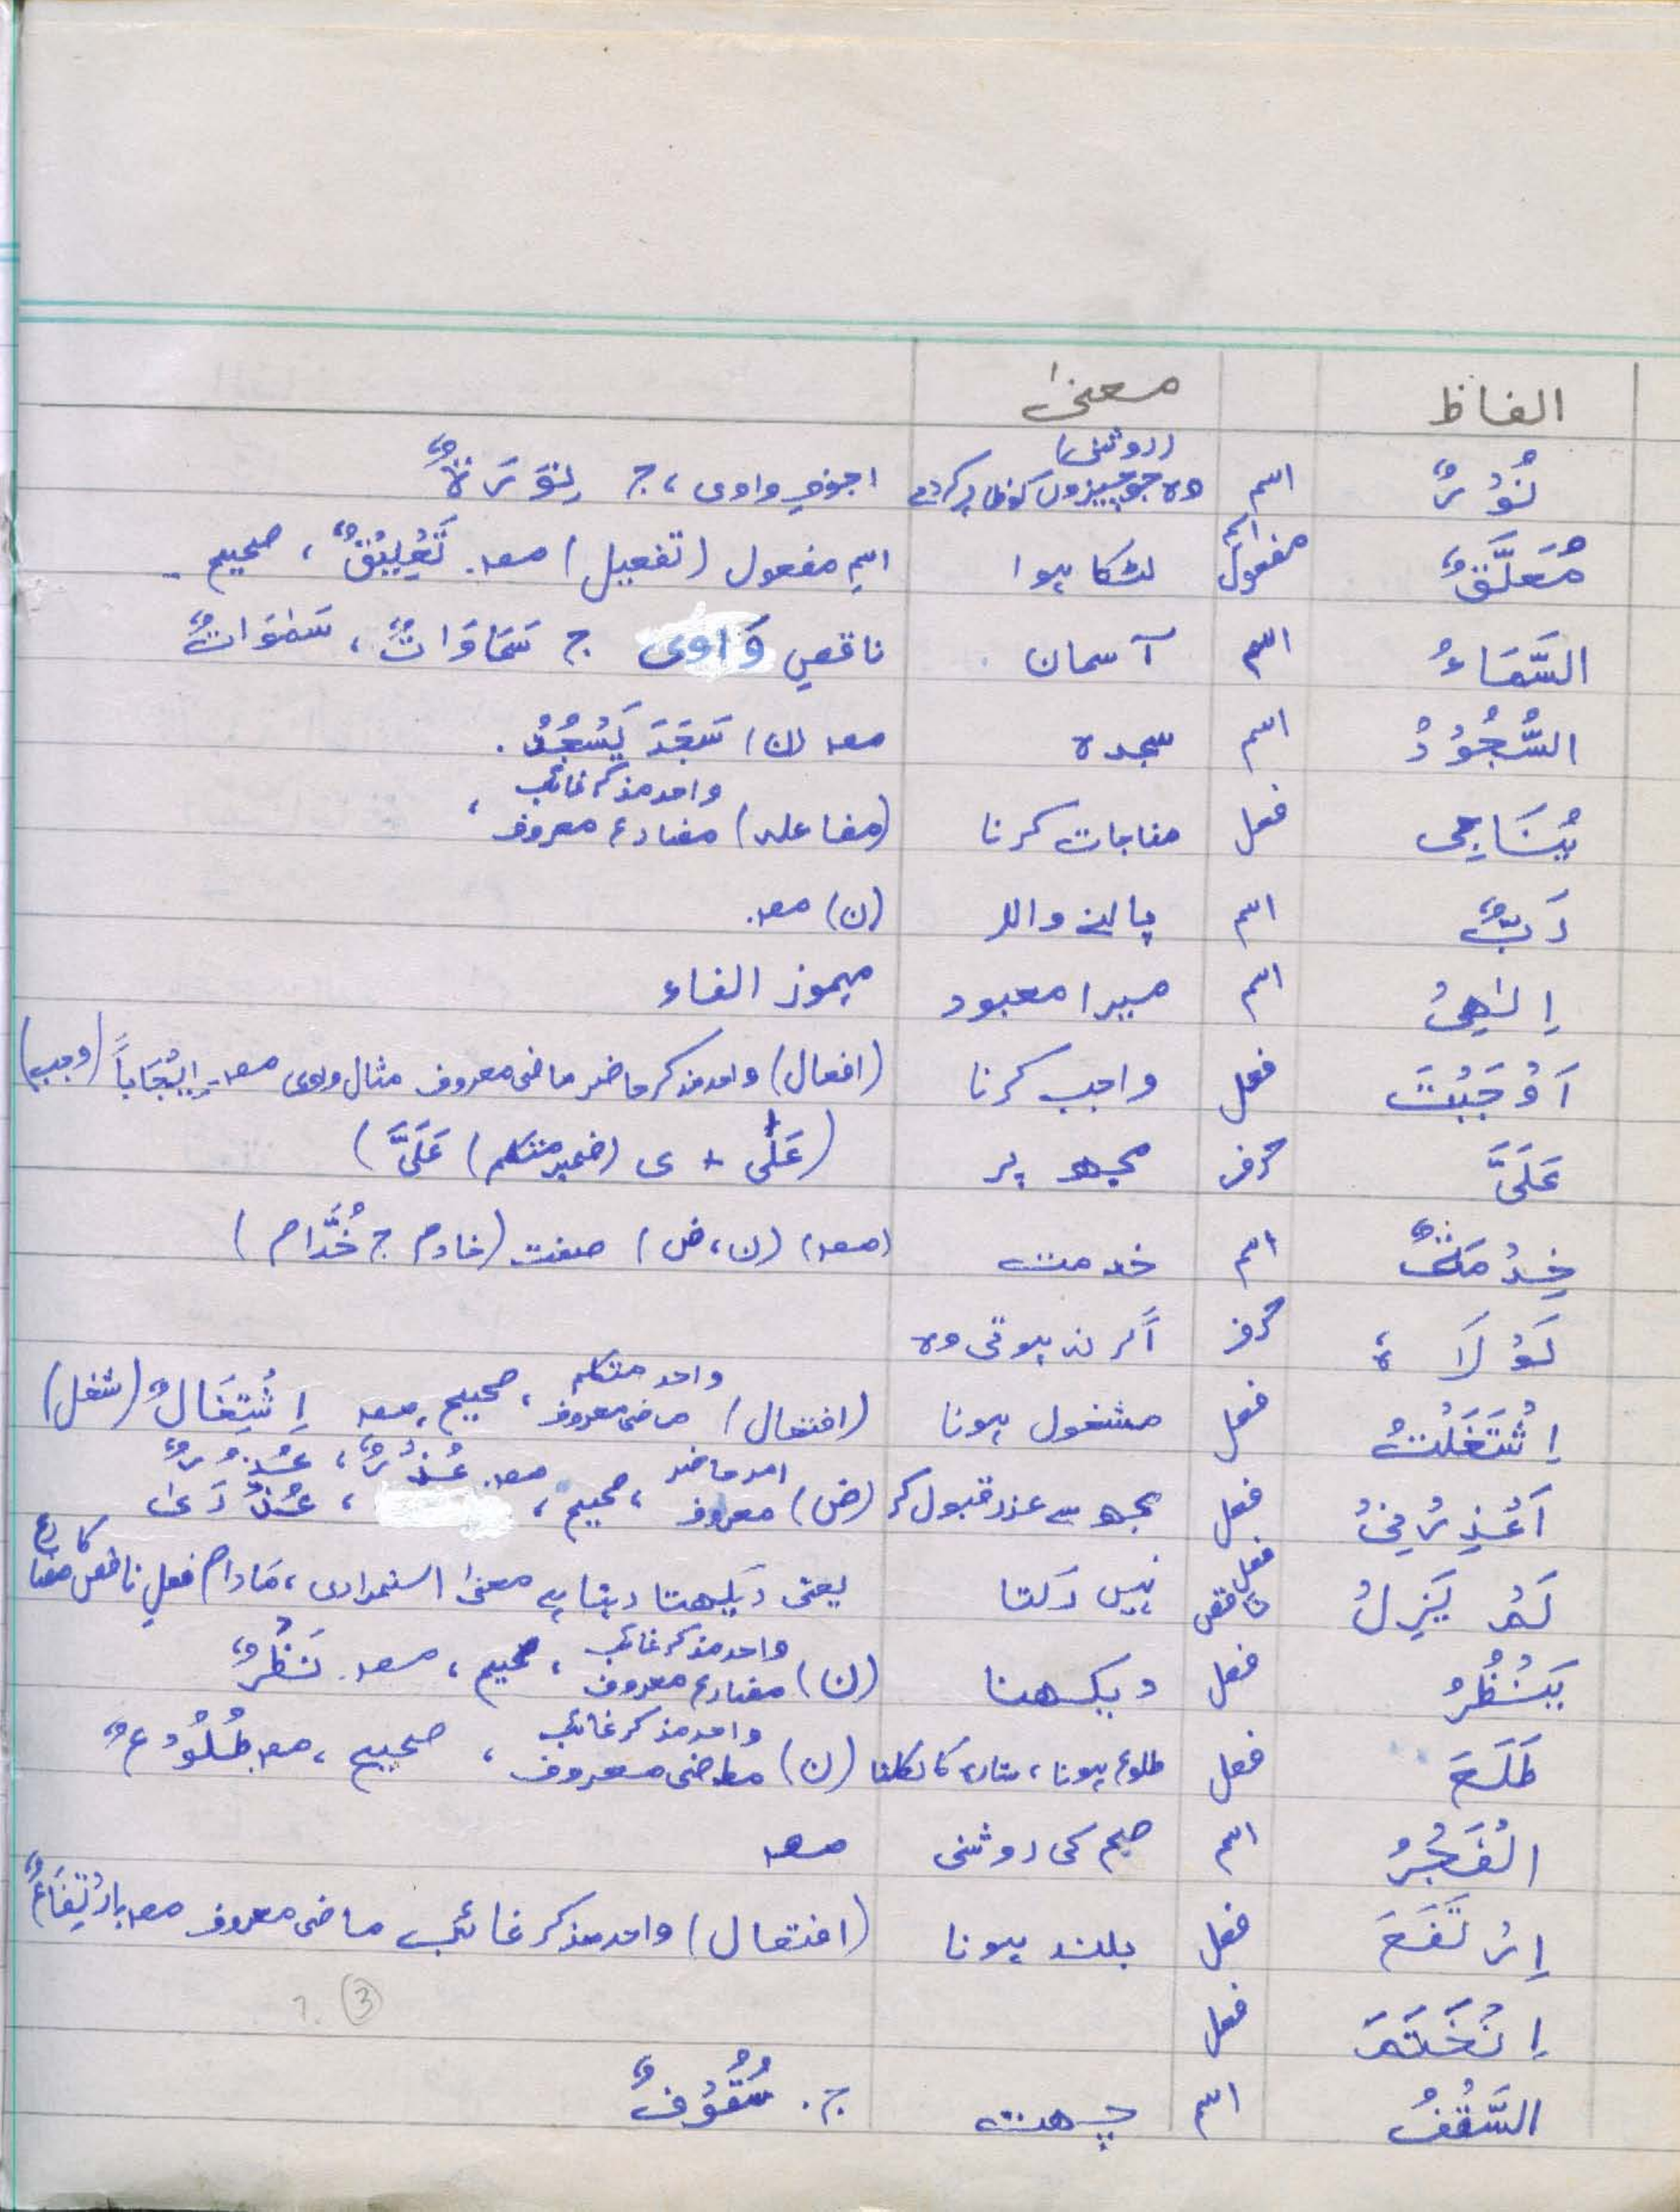 الفاظ معنیٰ
نُوْرٌ اسم (روشنی) وہ جو چیزوں کو ظاہر کردے اجوفِ واوی، ج نِوَرَةٌ
مُعَلَّقٌ اسم مفعول لٹکا ہوا اسمِ مفعول (تفعیل) مصد. تَعْلِيْقٌ، صحیح
السَّمَاءُ اسم آسمان ناقصِ وَاوی ج سَمَاوَاتٌ، سَمٰوَاتٌ
السُّجُوْدُ اسم سجدہ مصد (ن) سَجَدَ يَسْجُدُ.
يُنَاجِى فعل مناجات کرنا (مفاعلہ) واحد مذکر غائب مضارع معروف،
رَبٌّ اسم پالنے والا (ن) مصد.
اِلٰهِىْ اسم میرا معبود مہموز الفاء
اَوْجَبْتَ فعل واجب کرنا (افعال) واحد مذکر حاضر ماضی معروف مثال واوی مصد. اِيْجَاباً (وجب)
عَلَىَّ حرف مجھ پر (عَلٰى + ى (ضمیر متکلم) عَلَىَّ)
خِدْمَةٌ اسم خدمت (مصد) (ن، ض) صفت (خادم ج خُدَّام)
لَوْ لَا ہُ حرف اگر نہ ہوتی وہ
اِشْتَغَلْتُ فعل مشغول ہونا (افتعال) واحد متکلم ماضی معروف، صحیح، مصد اِشْتِغَالٌ (شغل)
اَعْذِرْنِىْ فعل مجھ سے عذر قبول کر (ض) امر حاضر معروف، صحیح، مصد. عُذْرٌ، عُذُرٌ، عُذْرَىٰ
لَمْ يَزِلْ فعل ناقص نہیں رکتا یعنی دیکھتا رہتا ہے معنیٰ استمراری، مَادام فعلِ ناقص کا مضارع
يَنْظُرُ فعل دیکھنا (ن) واحد مذکر غائب مضارع معروف، صحیح، مصد. نَظْرٌ
طَلَعَ فعل طلوع ہونا، ستارہ کا نکلنا (ن) واحد مذکر غائب ماضی معروف، صحیح، مصد طُلُوْعٌ
الْفَجْرُ اسم صبح کی روشنی مصد
اِرْتَفَعَ فعل بلند ہونا (افتعال) واحد مذکر غائب ماضی معروف مصد اِرْتِفَاعٌ
اِنْخَتَمَ فعل ③ ?
السَّقْفُ اسم چھت ج. سُقُوْفٌ